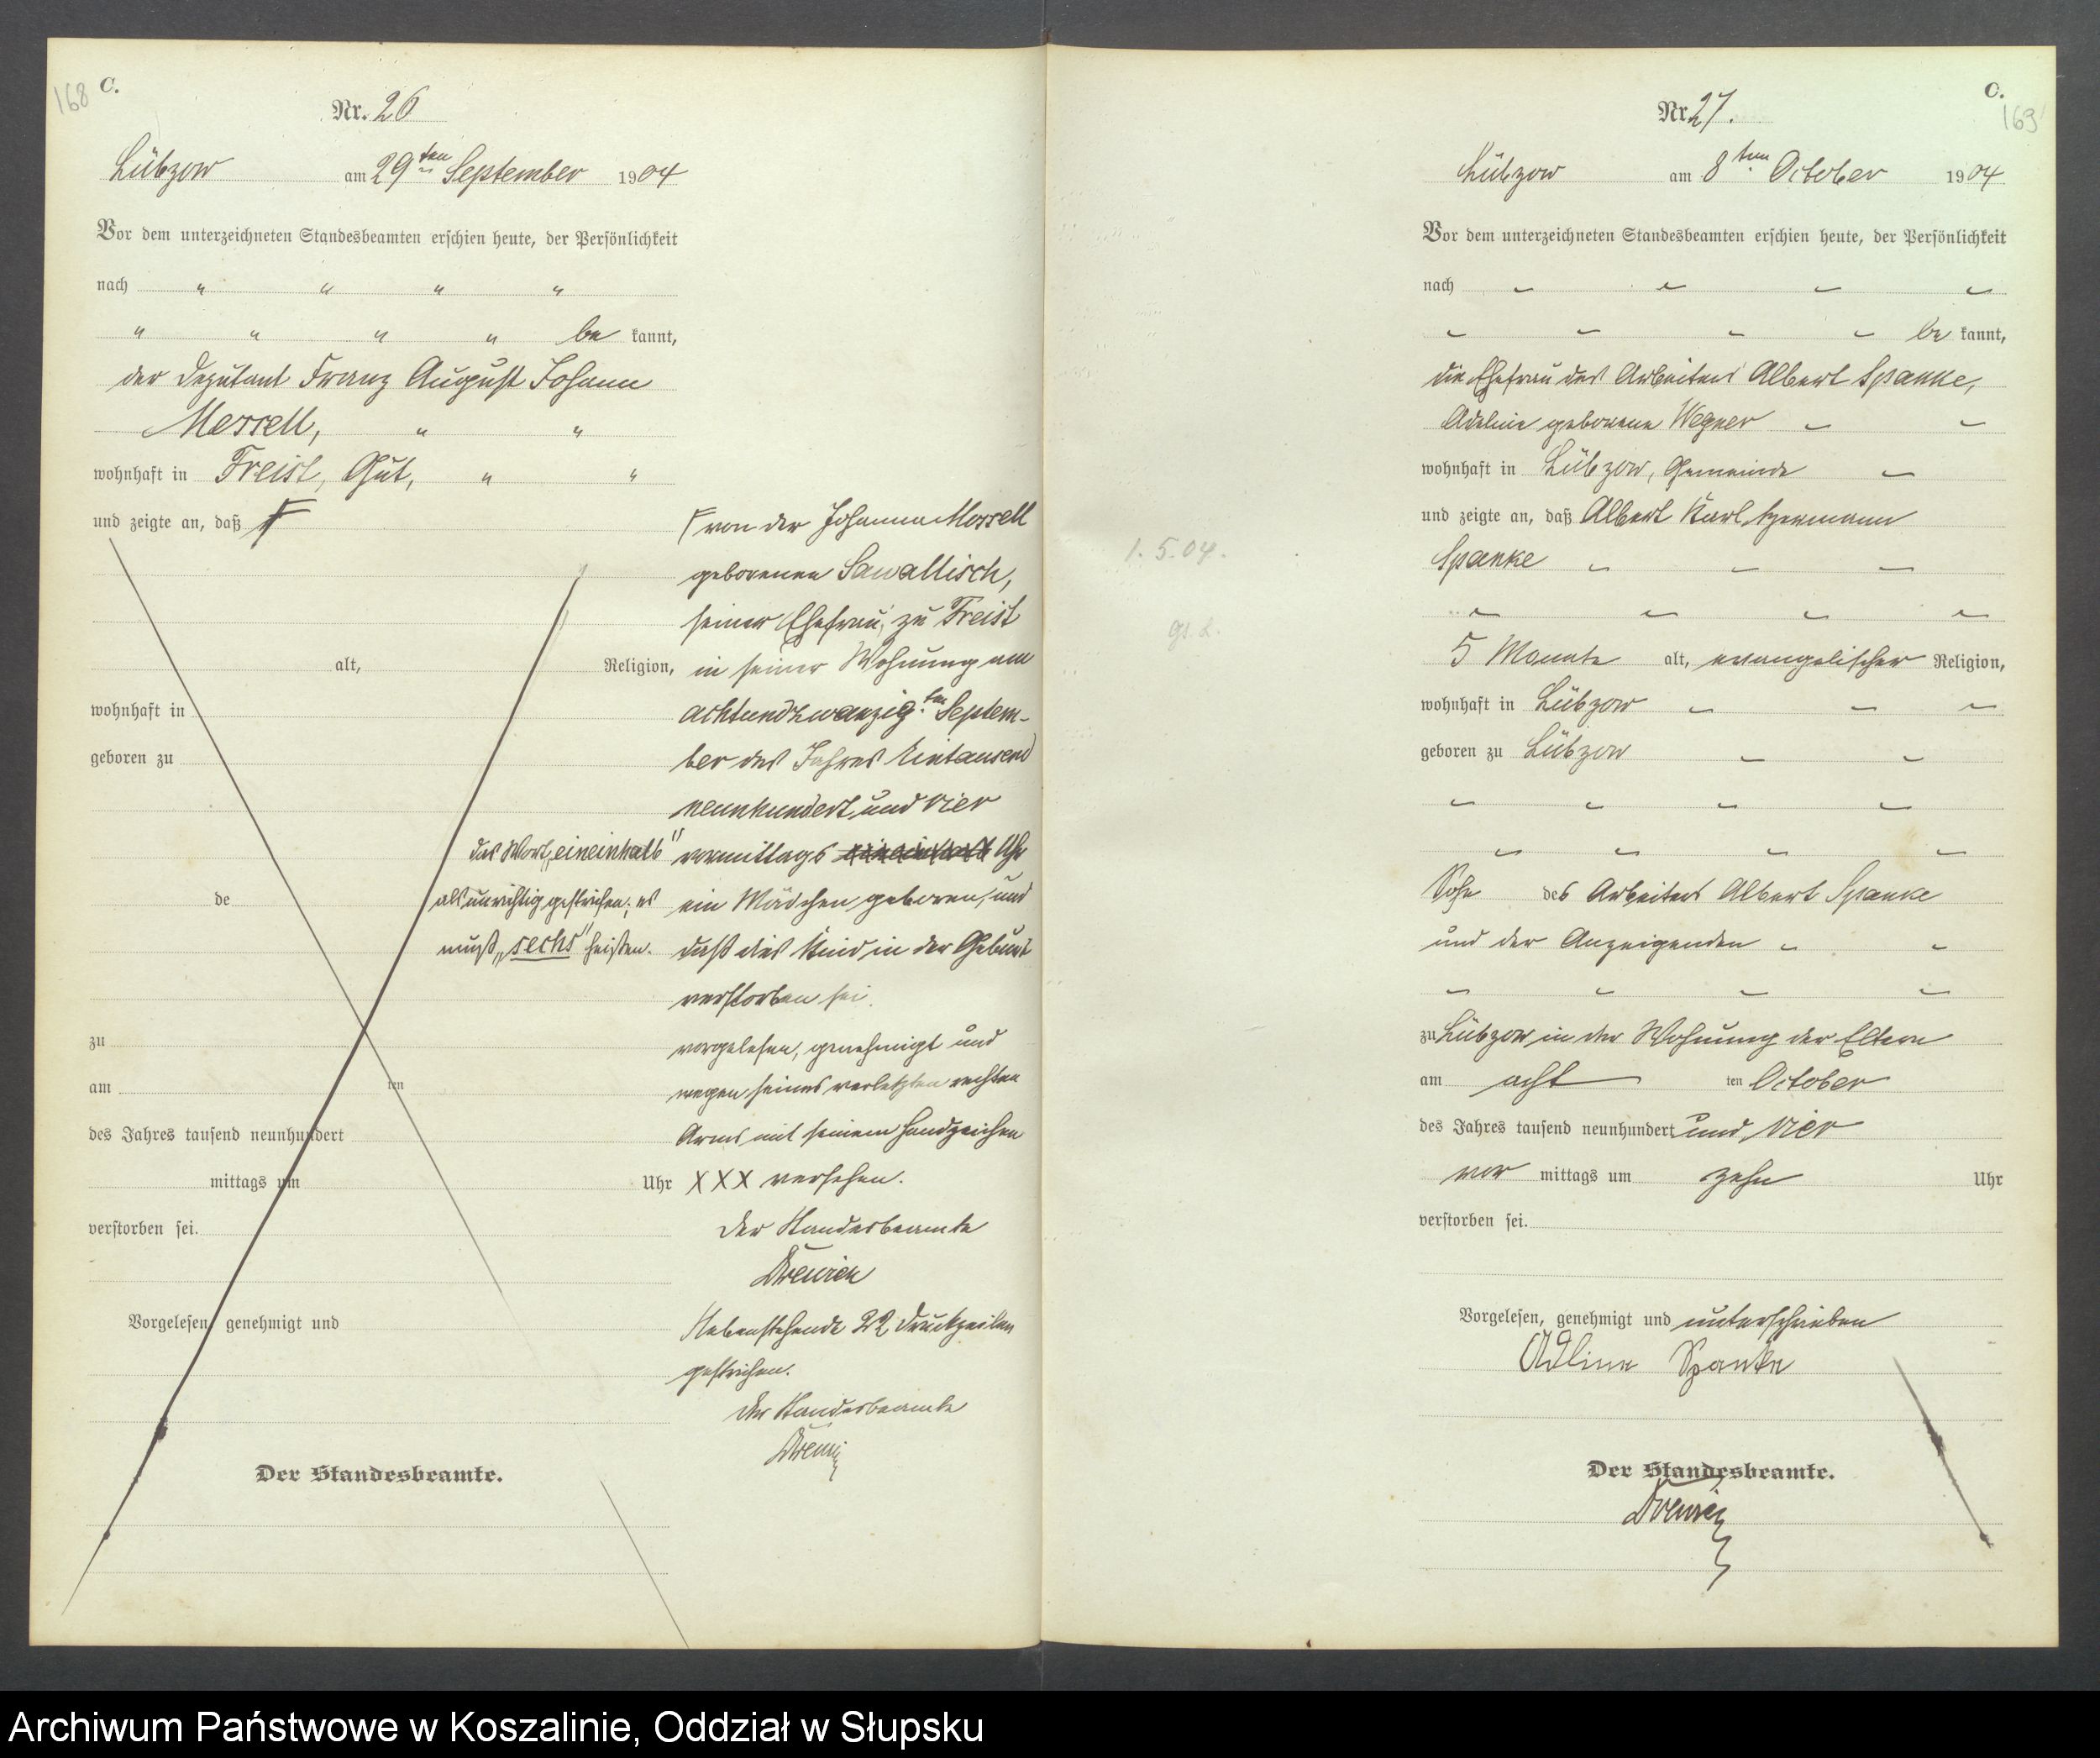 168
C.
Nr. 26
Lübzow am 29ten September 1904
Vor dem unterzeichneten Standesbeamten erschien heute, der Persönlichkeit
nach " " " "
" " " " be kannt,
der Deputant Franz August Johann
Morrell, " "
wohnhaft in Freist, Gut, " "
und zeigte an, daß
alt, Religion,
wohnhaft in
geboren zu
de
zu
am ten
des Jahres tausend neunhundert
mittags um Uhr
verstorben sei.
Vorgelesen, genehmigt und
Der Standesbeamte.
von der Johanna Morrell
geborenen Sawallisch,
seiner Ehefrau, zu Freist
in seiner Wohnung am
achtundzwanzigten Septem-
ber des Jahres Eintausend
neunhundert und vier
vormittags eineinhalb Uhr
ein Mädchen geboren, und
daß dies Kind in der Geburt
verstorben sei.
vorgelesen, genehmigt und
wegen seines verletzten rechten
Arms mit seinem Handzeichen
XXX versehen.
Der Standesbeamte
Nebenstehende 22 Druckzeilen
gestrichen.
Der Standesbeamte
das Wort „eineinhalb"
als unrichtig gestrichen; es
muß „sechs" heißen.
C.
169
Nr. 27.
Lübzow am 8ten October 1904
Vor dem unterzeichneten Standesbeamten erschien heute, der Persönlichkeit
nach
be kannt,
die Ehefrau des Arbeiters Albert Spanke,
Adeline geborene Wegner
wohnhaft in Lübzow, Gemeinde
und zeigte an, daß Albert Karl Hermann
Spanke
5 Monate alt, evangelischer Religion,
wohnhaft in Lübzow
geboren zu Lübzow
Sohn des Arbeiters Albert Spanke
und der Anzeigenden
zu Lübzow in der Wohnung der Eltern
am acht ten October
des Jahres tausend neunhundert und vier
vor mittags um zehn Uhr
verstorben sei.
Vorgelesen, genehmigt und unterschrieben
Adline Spanke
Der Standesbeamte.
1. 5. 04.
Archiwum Państwowe w Koszalinie, Oddział w Słupsku